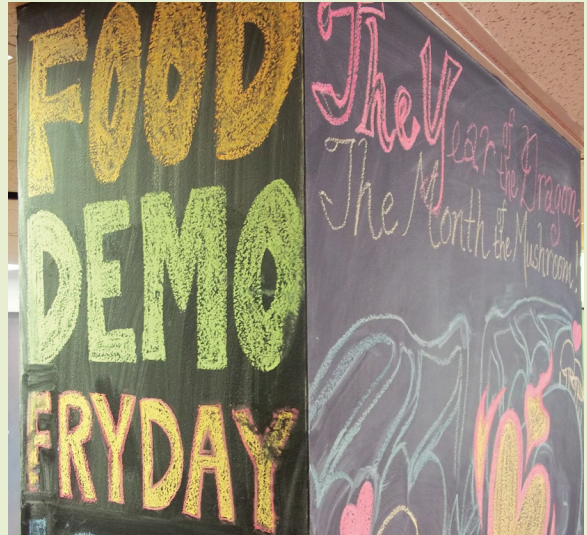 FOOD
DEMO
FRYDAY
The Year of the Dragon
The Month of the Mushroom!